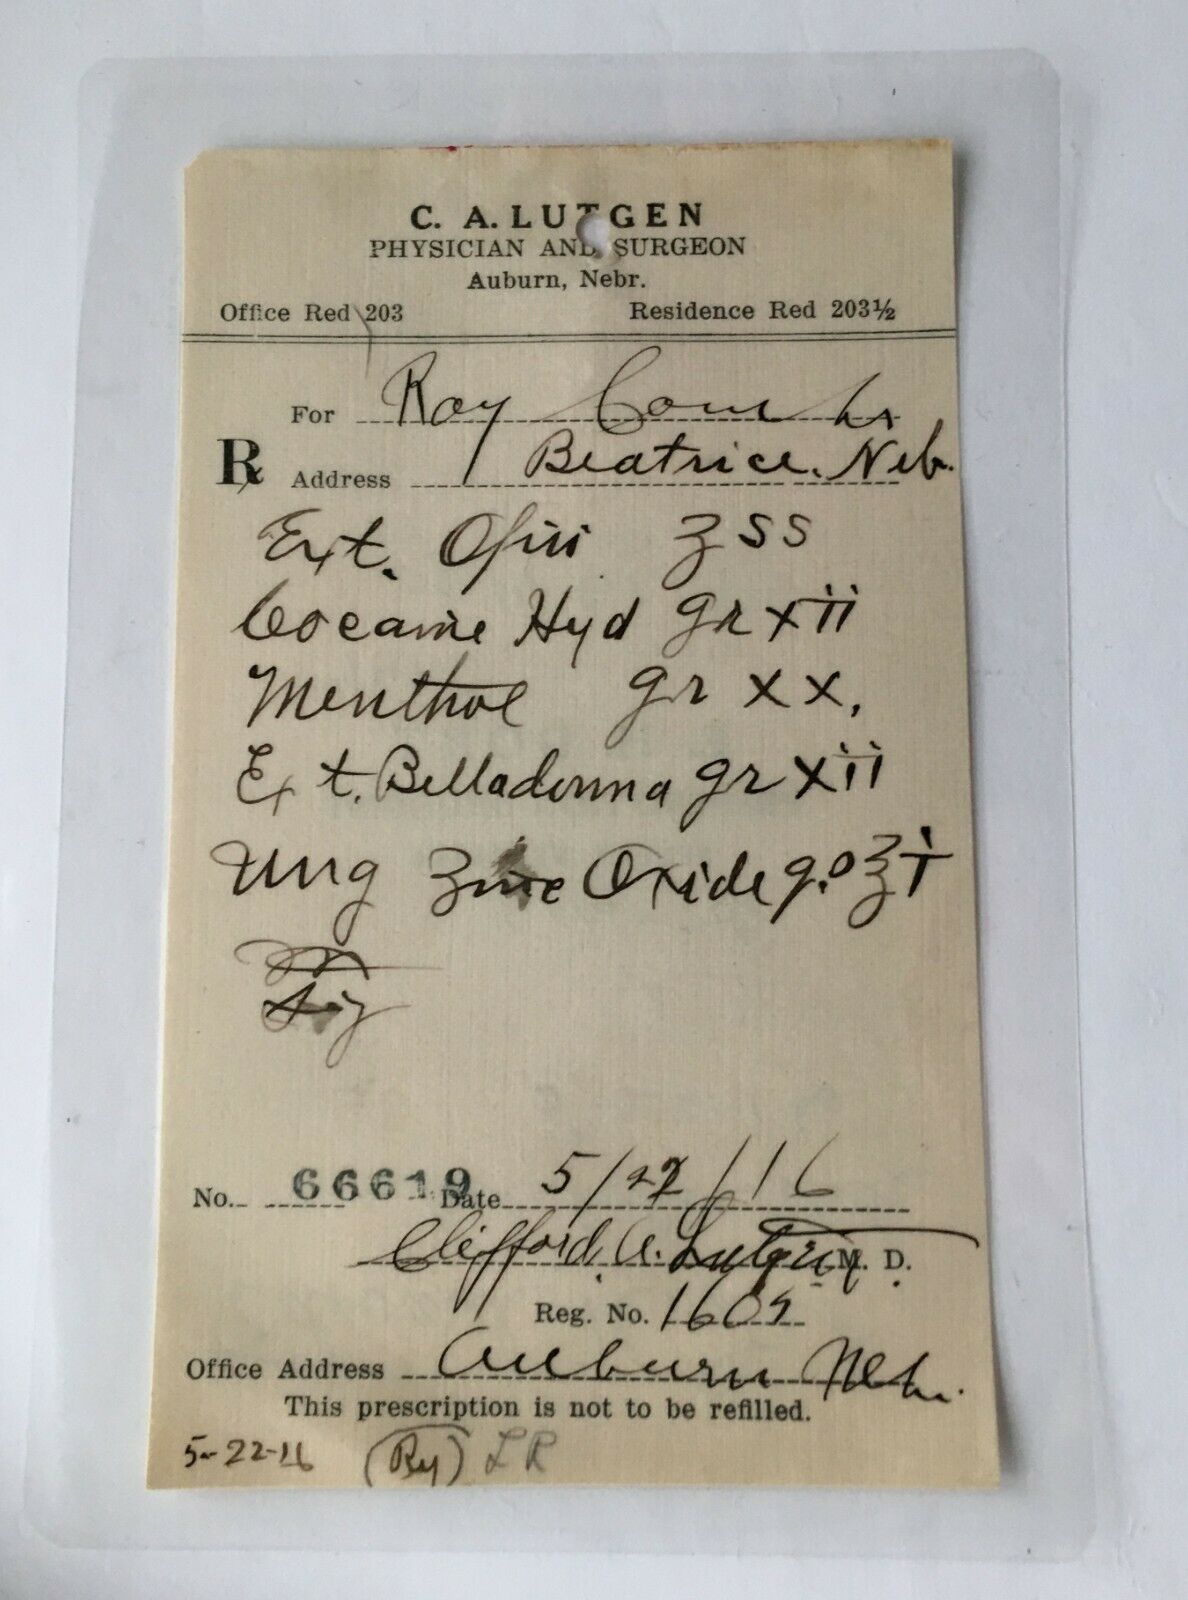 C. A. LUTGEN
PHYSICIAN AND SURGEON
Auburn, Nebr.
Office Red 203 Residence Red 203½
For Roy
℞ Address Beatrice, Neb.
Ext. Opii ʒ ss
Cocaine Hyd gr xii
Menthol gr xx.
Ext. Belladonna gr xii
Ung Zinc Oxide q.s ʒ i
M
Sig
No. 66619 Date 5/22/16
Clifford A. Lutgen M. D.
Reg. No. 1609
Office Address Auburn Neb.
This prescription is not to be refilled.
5-22-16 (Ry) LR